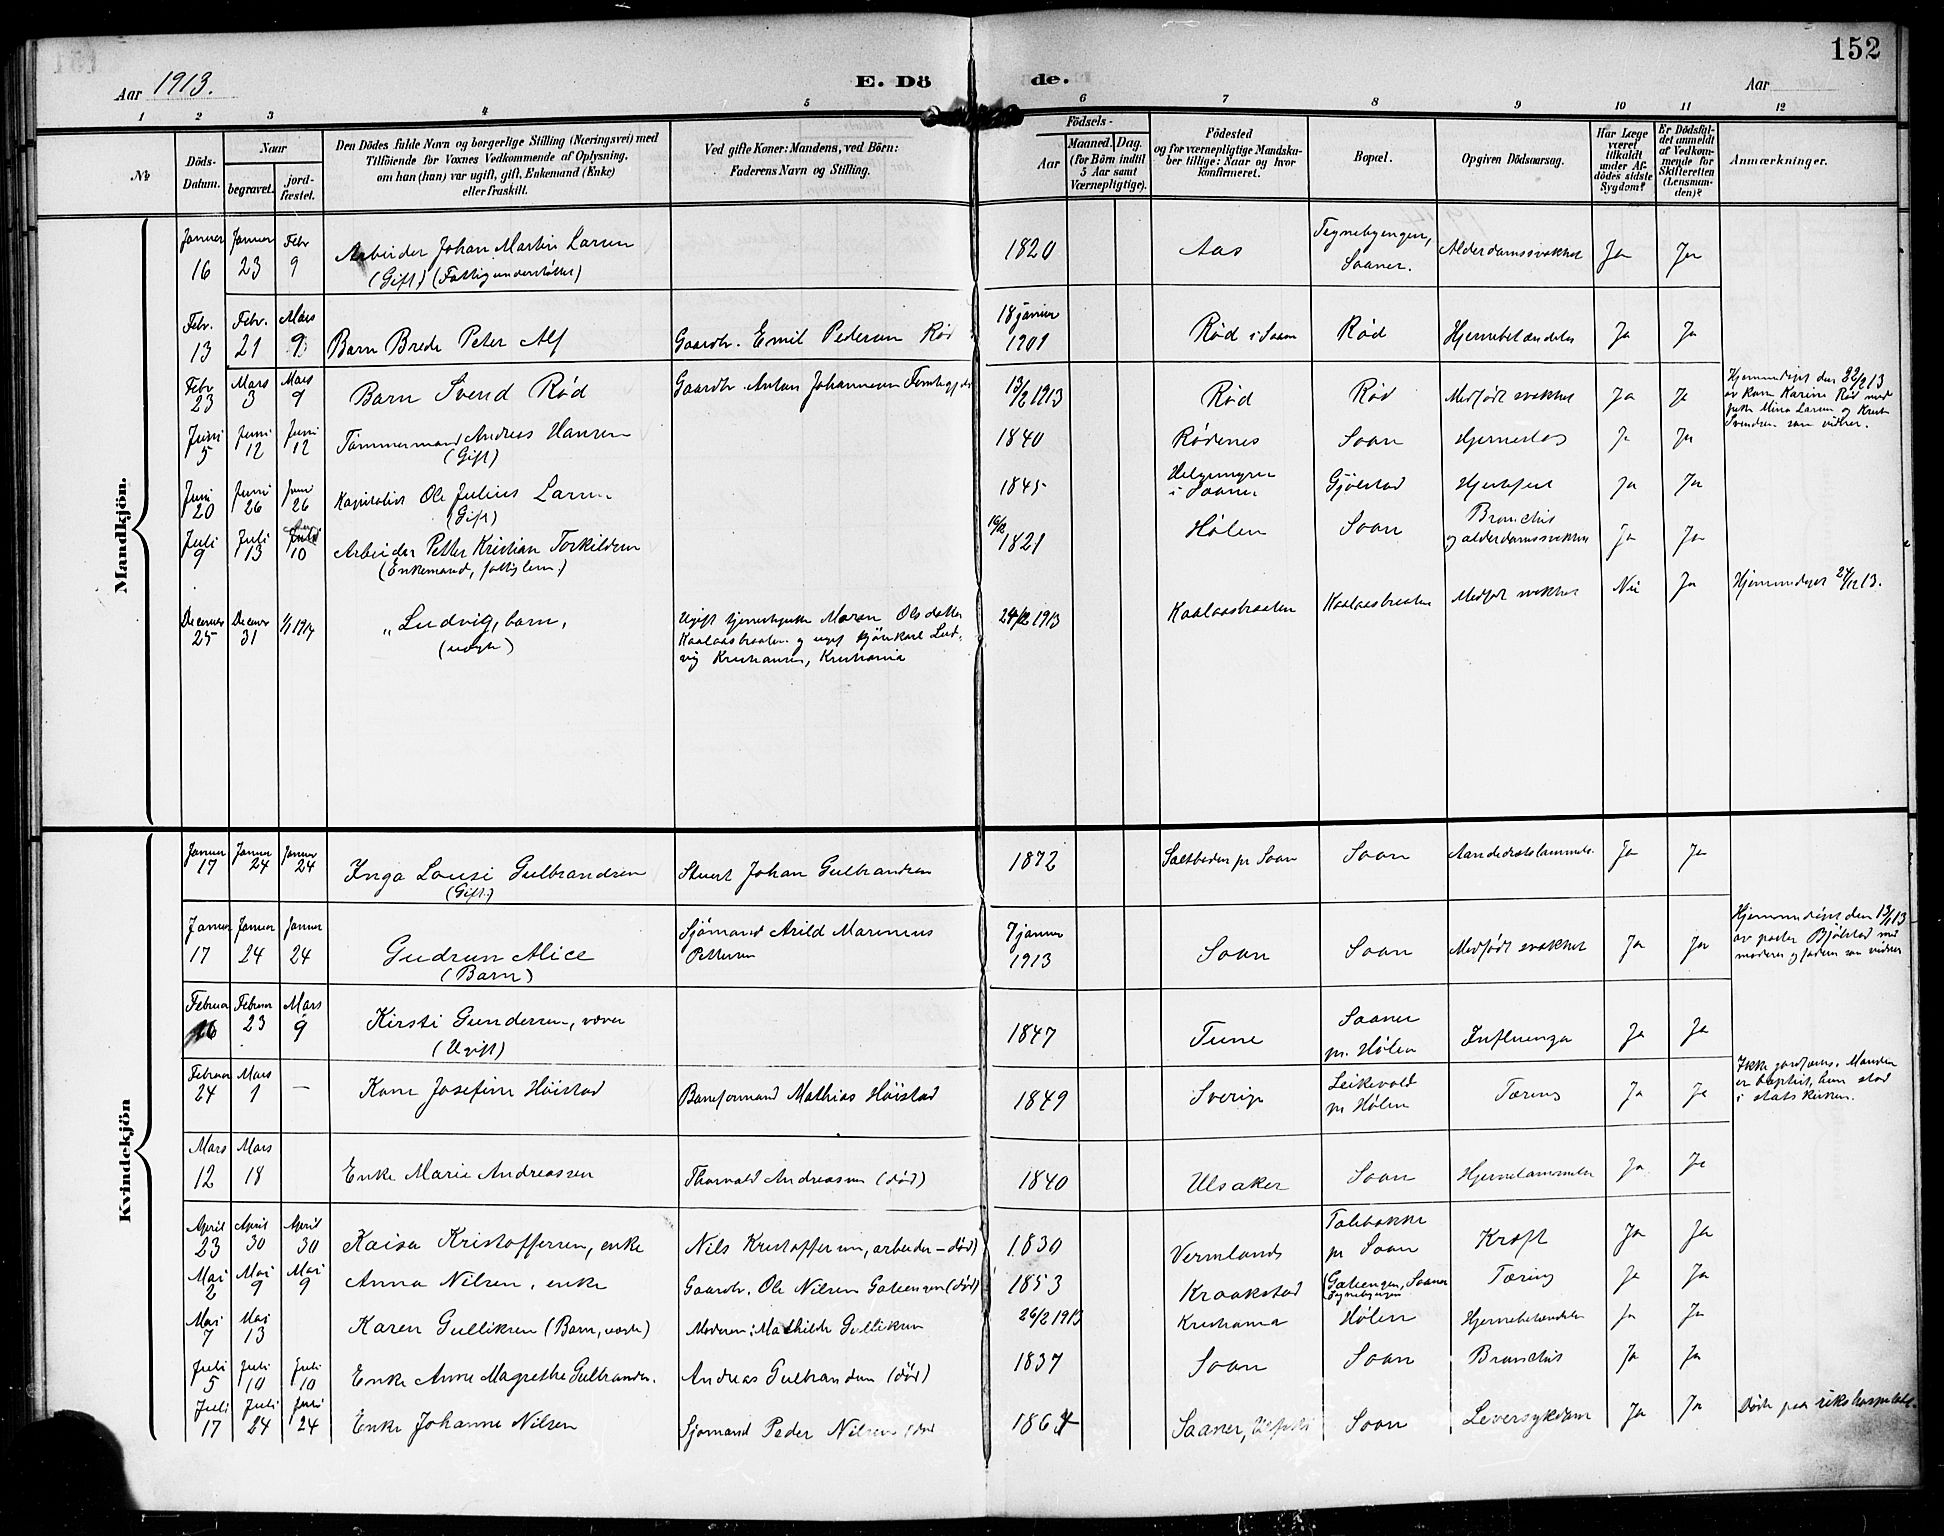 152
Aar 1913.
E. Dö
de.
Aar
1 2 3 4 5 6 7 8 9 10 11 12
No
Döds-
Datum.
Naar
begravet.
jord-
fæstet.
Den Dödes fulde Navn og borgerlige Stilling (Næringsvei) med
Tilföiende for Voxnes Vedkommende af Oplysning,
om han (hun) var ugift, gift, Enkemand (Enke)
eller fraskilt.
Ved gifte Koner: Mandens, ved Börn:
Faderens Navn og Stilling.
Födsels-
Aar
Maaned.
Dag.
(for Börn indtil
5 Aar samt
Værnepligtige).
Födested
og for værnepligtige Mandska-
ber tillige: Naar og hvor
konfirmeret.
Bopæl.
Opgiven Dödsaarsag.
Har Læge
været
tilkaldt
under Af-
dödes sidste
Sygdom?
Er Dödsfal-
det anmeldt
af Vedkom-
mende for
Skifteretten
(Lensman-
den)?
Anmærkninger.
Mandkjön.
Januar 16 Januar 23 Febr 9 Arbeider Johan Martin Larsen 1820 Aas Tegnebyengen, Alderdomssvakhet Ja Ja
(Gift) (Fattigunderstøttet) Saaner.
Febr. 13 Febr. 21 Mars 9 Barn Brede Peter Alf Gaardbr. Emil Pedersen Rød 18 januar 1901 Rød i Saaner Rød Hjernebetændelse Ja Ja
Febr 23 Mars 3 Mars 9 Barn Svend Rød Gaardbr. Anton Johannesen 13/2 1913 Rød Rød Medfødt svakhet Ja Ja Hjemmedøpt den 22/2 13
av Karen Karine Rød med
Mina Larsen og
Svendsen som vidner.
Juni 5 Juni 12 Juni 12 Tømmermand Andreas Hansen 1840 Rødenes Soon Hjerneslag Ja Ja
(Gift)
Juni 20 Juni 26 Juni 26 Kapitalist Ole Julius Larsen 1845 i Saaner Gjølstad Hjertefeil Ja Ja
(Gift)
Juli 9 Juli 13 Juli 10 Arbeider Petter Kristian Torkildsen 1821 Hølen Soon Bronchit Ja Ja
(Enkemand, fattiglem) og alderdomssvakhet
December 25 December 31 1/1 1914 „Ludvig, barn, Ugift tjenestepike Maren Olsdatter 24/12 1913 Kaalaasbraaten Kaalaasbraaten Medfødt svakhet Nei Ja Hjemmedøpt 24/12 13.
(uægte) Kaalaasbraaten og ugift Lud-
vig Kristiansen, Kristiania
Kvindekjön
Januar 17 Januar 24 Januar 24 Inga Louise Gulbrandsen Stuert Johan Gulbrandsen 1872 Saltboden pr Soon Soon Aandedrætslammelse Ja Ja
(Gift)
Januar 17 Januar 24 Januar 24 Gudrun Alice Sjømand Arild Marinius 7 januar 1913 Soon Soon Medfødt svakhet Ja Ja Hjemmedøpt den 13/1 13
(Barn) Pettersen av pastor Bjølstad med
moderen og faderen som vidner
Februar 16 Februar 23 Mars 9 Kirsti Gundersen, væver 1847 Tune Saaner Influenza Ja Ja
(Ugift) pr. Hølen
Februar 24 Mars 1 — Kone Josefine Høistad Baneformand Mathias Høistad 1849 Sverige Leikevold Tæring Ja Ja Ikke jordfæstet. Manden
pr Hølen er baptist, hun stod
i statskirken.
Mars 12 Mars 18 Enke Marie Andreassen Thorvald Andreassen (død) 1840 Ulsaker Soon Hjernelammelse Ja Ja
April 23 April 30 April 30 Kaisa Kristoffersen, enke Nils Kristoffersen, arbeider - død) 1830 Vermland Labakke Kræft Ja Ja
pr Soon
Mai 2 Mai 9 Mai 9 Anna Nilsen, enke Gaardbr. Ole Nilsen Galeengen (død) 1853 Kraakstad Galeengen, Saaner Tæring Ja Ja
Tegnebyengen
Mai 7 Mai 13 Karen Gulliksen (Barn, uægte) Moderen: Mathilde Gulliksen 26/2 1913 Kristiania Hølen Hjernebetændelse Ja Ja
Juli 5 Juli 10 Juli 10 Enke Anne Magrethe Gulbrandsen. Andreas Gulbrandsen (død) 1837 Soon Soon Bronchit Ja Ja
Juli 17 Juli 24 Juli 24 Enke Johanne Nilsen Sjømand Peder Nilsen (død 1864 Saaner, Soon Leversykdom Ja Ja Døde paa rikshospitalet.